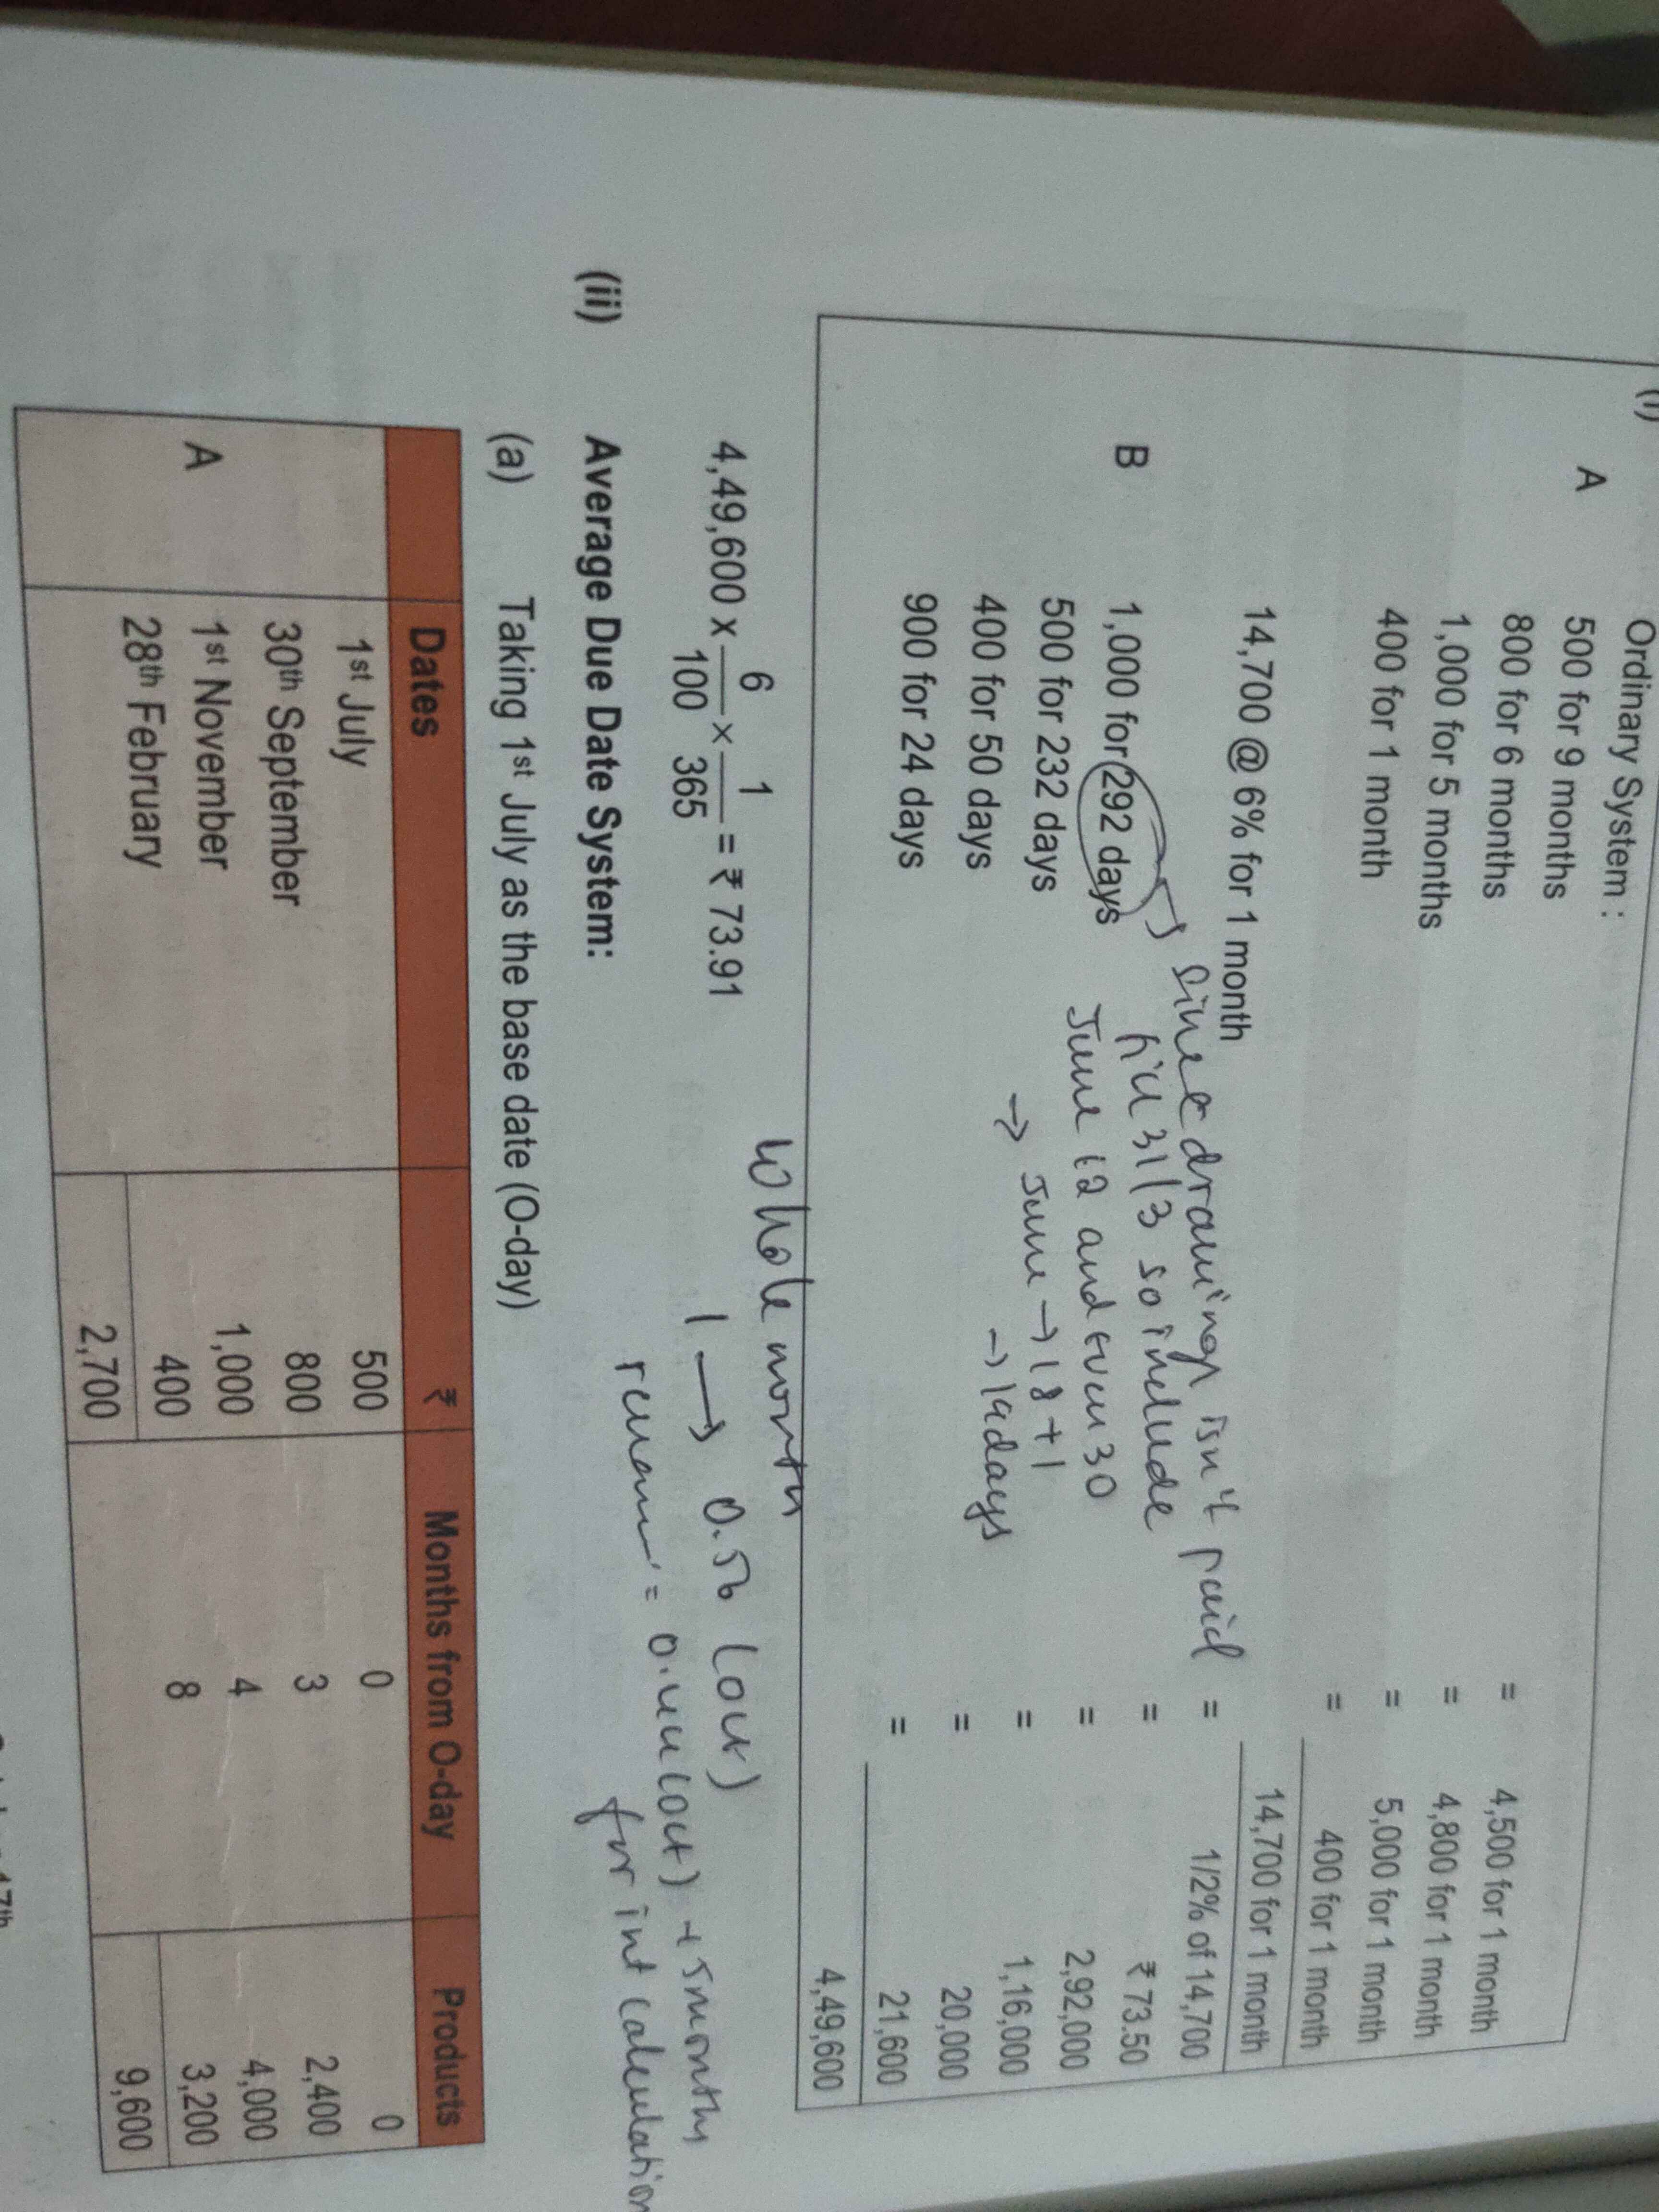 (i)
Ordinary System :
A 500 for 9 months = 4,500 for 1 month
800 for 6 months = 4,800 for 1 month
1,000 for 5 months = 5,000 for 1 month
400 for 1 month = 400 for 1 month
14,700 for 1 month
14,700 @ 6% for 1 month = 1/2% of 14,700
= ₹ 73.50
since drawings isn't paid
till 31/3 so include
June 12 and even 30
→ June → 18 + 1
→ 19 days
B 1,000 for 292 days = 2,92,000
500 for 232 days = 1,16,000
400 for 50 days = 20,000
900 for 24 days = 21,600
4,49,600
4,49,600 x 6/100 × 1/365 = ₹ 73.91
whole month
1 → 0.56 (oct)
= 0.44 (oct) + 5 months
for int calculation
(ii) Average Due Date System:
(a) Taking 1st July as the base date (O-day)
Dates ₹ Months from O-day Products
1st July 500 0 0
30th September 800 3 2,400
A 1st November 1,000 4 4,000
28th February 400 8 3,200
2,700 9,600
17th